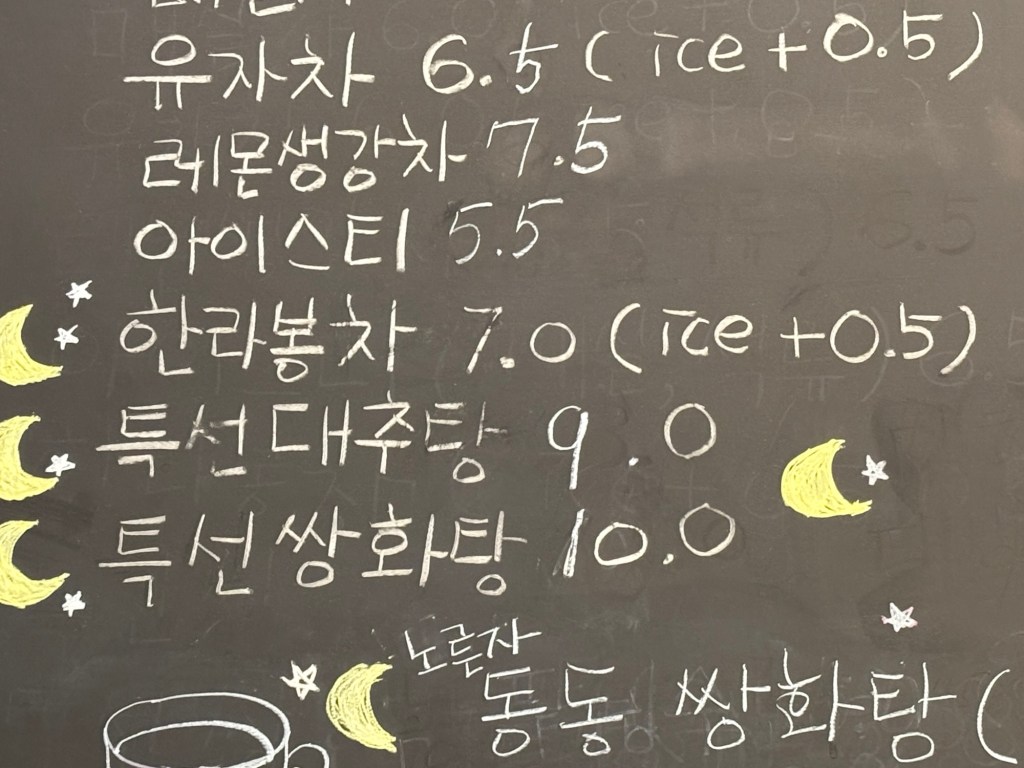 유자차 6.5 ( ice + 0.5 )
레몬생강차 7.5
아이스티 5.5
한라봉차 7.0 ( ice +0.5 )
특선대추탕 9.0
특선쌍화탕 10.0
노른자
동동 쌍화탕 (